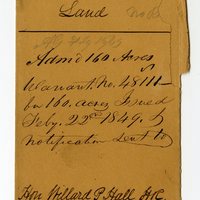 Land
Adm'd 160 Acres
Warrant. No. 48111
for 160. acres Issued
Feby. 22nd 1849. &
notification sent to
Hon Willard P. Hall H.R.